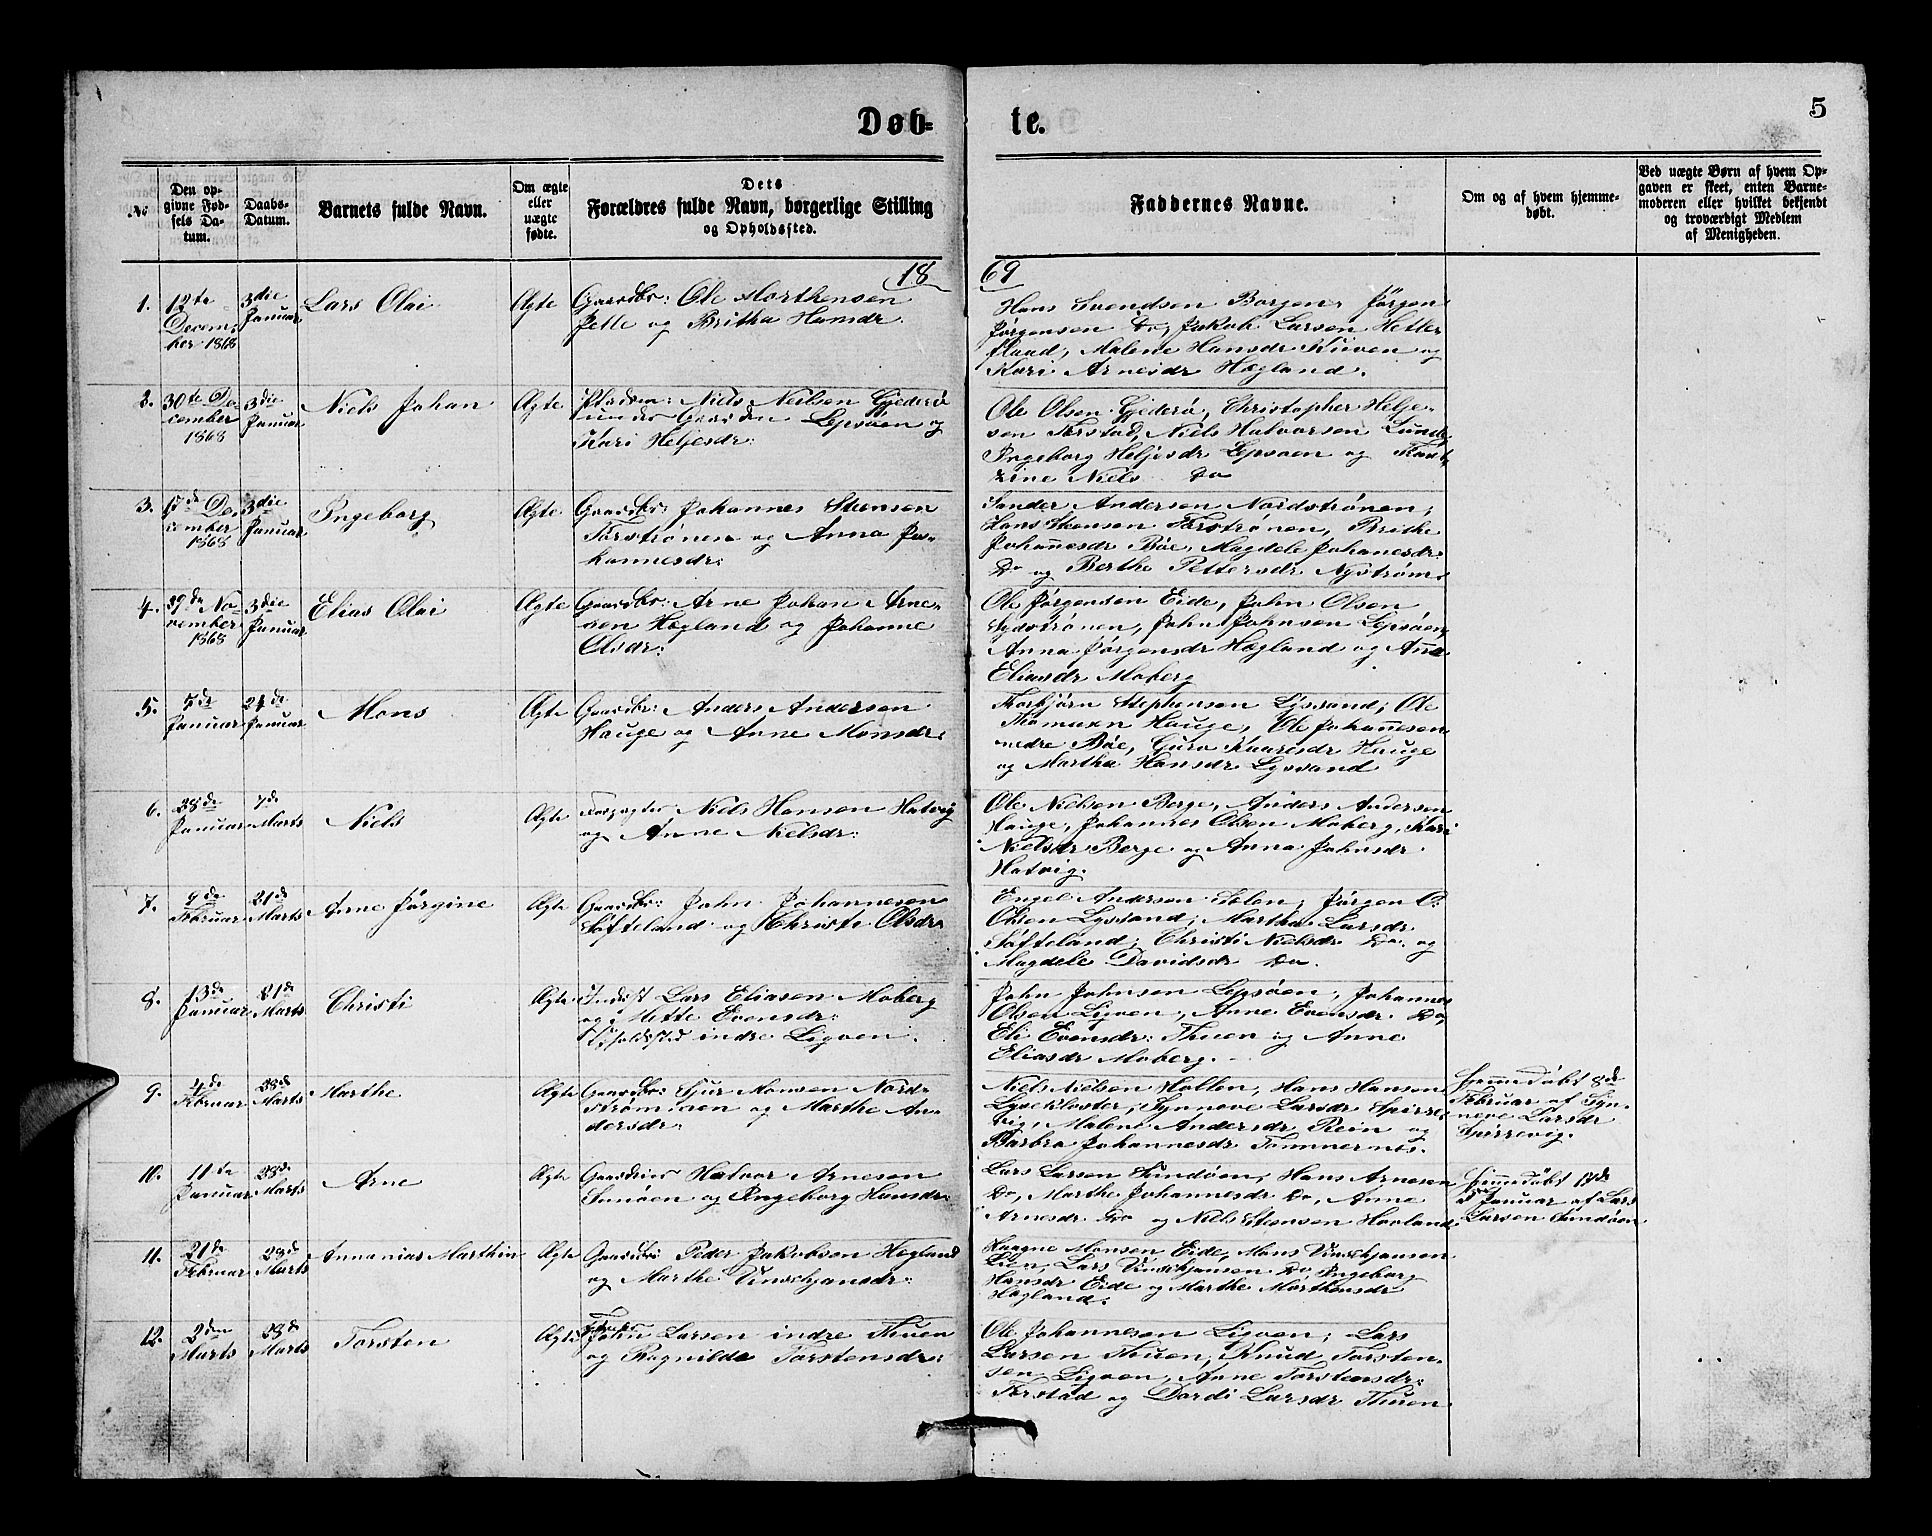 Døb-
te.
5
No
Den op-
givne Fød-
sels Da-
tum.
Daabs-
Datum.
Barnets fulde Navn.
Om ægte
eller
uægte
fødte.
Dets
Forældres fulde Navn, borgerlige Stilling
og Opholdssted.
Faddernes Navne.
Om og af hvem hjemme-
døbt.
Ved uægte Børn af hvem Op-
gaven er skeet, enten Barne-
moderen eller hvilket bekjendt
og troværdigt Medlem
af Menigheden.
18
69
1.
12te
Decem-
ber 1868
3die
Januar
Lars Olai
Ægte
Gaardbr: Ole Morthensen
Pette og Britha Hansdr.
Hans Svendsen Borgen, Jörgen
Jörgensen Do, Jakob Larsen Hetle
flaad, Malene Hansdr Kuven og
Kari Arnesdr Hægland.
2.
30te De
cember
1868
3die
Januar
Niels Johan
Ægte
Pladsm: Niels Neilsen Gjederö
under Gaarden Lepsöen og
Kari Heljesdr:
Ole Olsen Gjederö, Christopher Helje-
sen Forstad, Niels Halvorsen Lunde
Ingeborg Heljesdr Lepsöen og
rine Niels Do
3.
17de De-
cember
1868
3die
Januar
Ingeborg
Ægte
Gaardbr: Johannes Stensen
Forströnen og Anna Jo-
hannesdr:
Sander Andersen Nordströnen,
Hans Stensen Forströnen, Brithe
Johannesdr Böe, Magdele Johanesdr
Do og Berthe Pettersdr Nyström.
4.
29de No
vember
1868
3die
Januar
Elias Olai
Ægte
Gaardbr: Arne Johan Arne-
sen Hægland og Johanne
Olsdr:
Ole Jörgensen Eide, John Olsen
Sydströnen, John Johnsen Lepsöen,
Anna Jörgensdr Hægland og Anne
Eliasdr Moberg
5.
5de
Januar
24de
Januar
Mons
Ægte
Gaardbr: Anders Andersen
Hauge og Anne Monsdr.
Thorbjörn Stephensen Lyssand, Ole
Thomasen Hauge, Ole Johannesen
nedre Böe, Guro Knaresdr Hauge
og Martha Hansdr Lyssand
6.
28de
Januar
7de
Marts
Niels
Ægte
Forpagter Niels Hansen Hatvig
og Anne Nielsdr:
Ole Nielsen Berge, Anders Andersen
Hauge, Johannes Olsen Moberg, Kari
Nielsdr Berge og Anna Johnsdr
Hatvig.
7.
9de
Februar
21de
Marts
Anne Jörgine
Ægte
Gaardbr: John Johannesen
Söfteland og Christi Olsdr
Engel Andersen Solen, Jörgen O.
Olsen Lyssand, Martha Larsdr
Söfteland, Christi Nielsdr Do. og
Magdele Davidsdr Do.
8.
13de
Januar
21de
Marts
Christi
Ægte
Indst Lars Eliasen Moberg
og Mette Evensdr:
Opholdsted indre Ligven.
John Johnsen Lepsöen, Johannes
Olsen Ligven, Anne Evensdr Do,
Eli Evensdr: Thuen og Anne
Eliasdr Moberg.
9.
4de
Februar
28de
Marts
Marthe
Ægte
Gaardbr: Sjur Monsen Nord-
strömnen og Marthe An-
dersdr:
Niels Nielsen Hallen, Hans Hansen
Lysekloster, Synneve Larsdr Spirre-
vig, Malene Andersdr Rein og
Barbra Johannesdr Tömmernes.
Hjemmedöbt 8de
Februar af Syn-
neve Larsdr
Spirrevig.
10.
11te
Januar
28de
Marts
Arne
Ægte
Gaardbr Halvor Arnesen
Sundöen og Ingeborg Hansdr
Lars Larsen Sundöen, Hans Arnesen
Do, Marthe Johannesdr Do, Anne
Arnesdr Do og Niels Stensen Havland
Hjemmedöbt 17de
Januar af Lars
Larsen Sundöen
11.
21de
Februar
28de
Marts
Annanias Marthin
Ægte
Gaardbr Peder Jakobsen Hegland
og Marthe Vinschjansdr:
Haagne Monsen Eide, Mons Vinschjansen
Lien, Lars Vinschjansen Do, Ingeborg
Hansdr Eide og Marthe Morthensdr
Hægland.
12.
2den
Marts
28de
Marts
Torsten
Ægte
John Larsen indre Thuen
og Ragnilde Torstensdr:
Ole Johannesen Ligven, Lars
Larsen Thuen, Knud Torsten-
sen Ligven, Anne Torstensdr:
Forstad og Dordi Larsdr Thuen